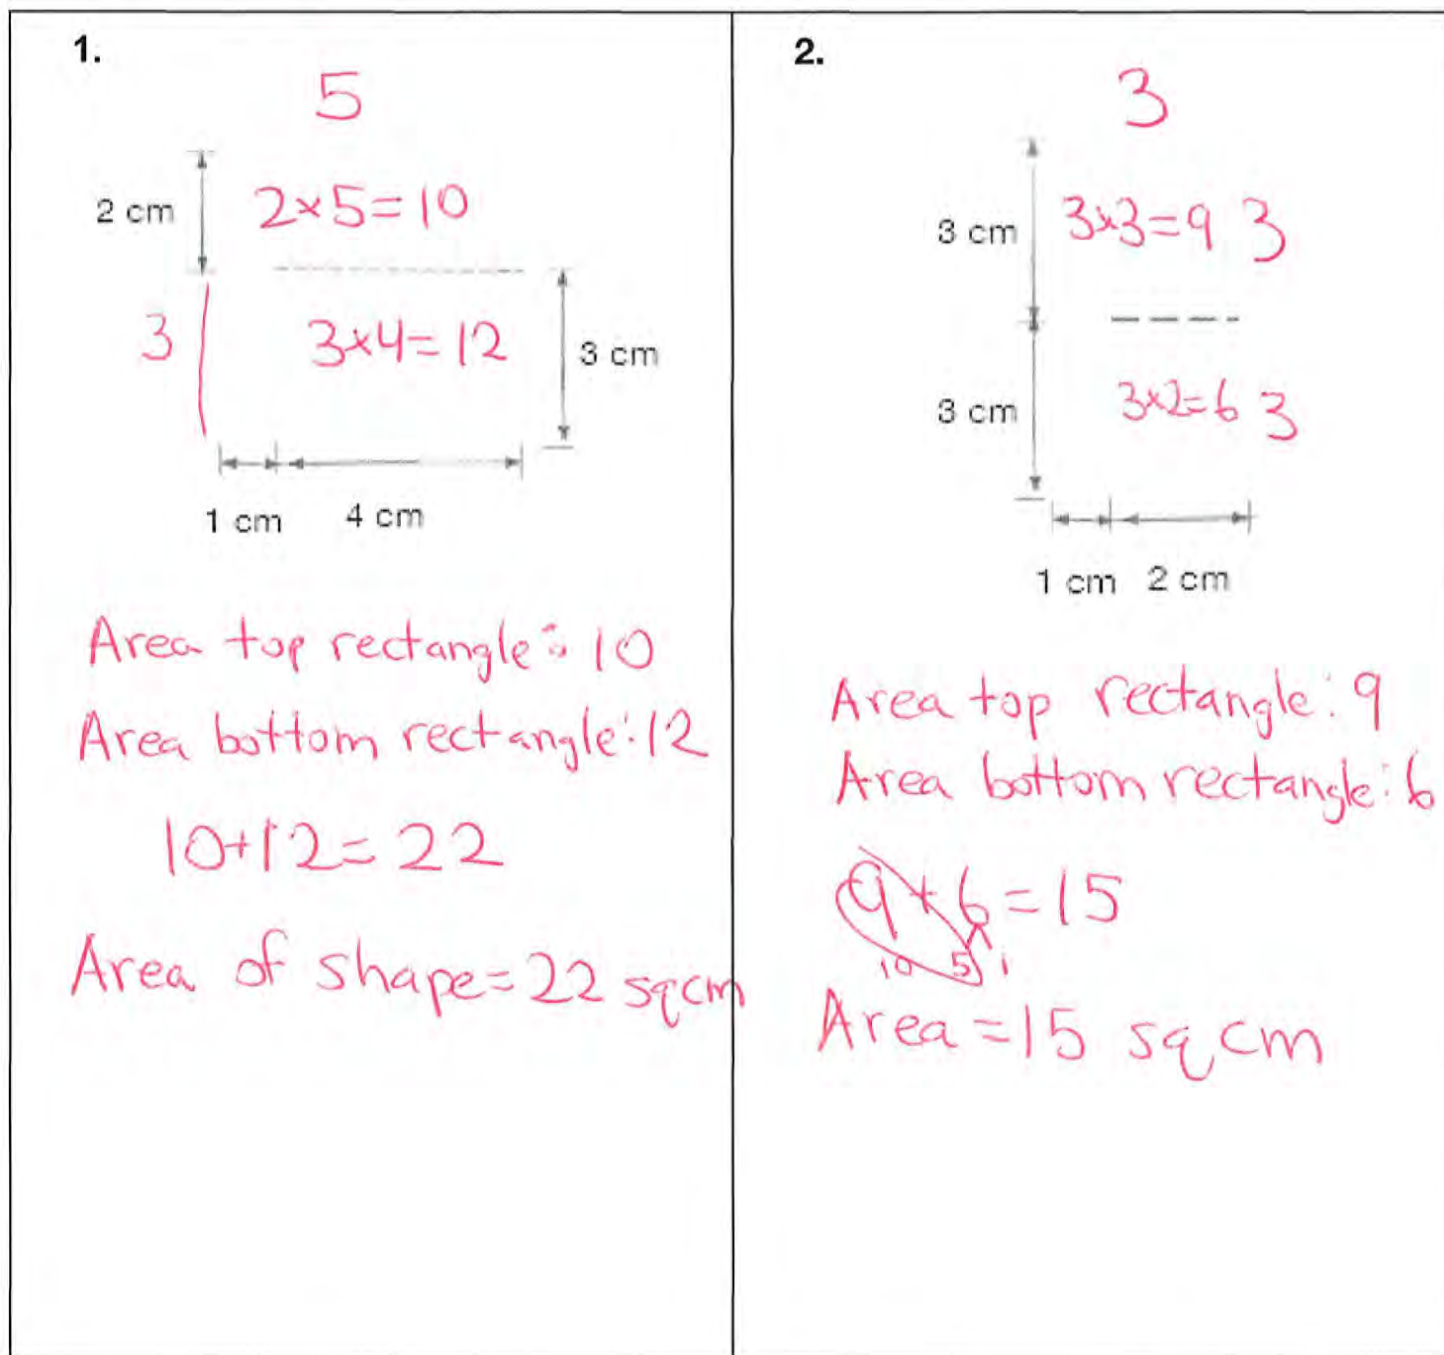 1.
5
2 cm
2×5=10
3
3×4=12
3 cm
1 cm
4 cm
Area top rectangle: 10
Area bottom rectangle: 12
10+12=22
Area of shape=22 sq cm
2.
3
3 cm
3×3=9 3
3 cm
3×2=6 3
1 cm
2 cm
Area top rectangle: 9
Area bottom rectangle: 6
9+6=15
10 5 1
Area=15 sq cm